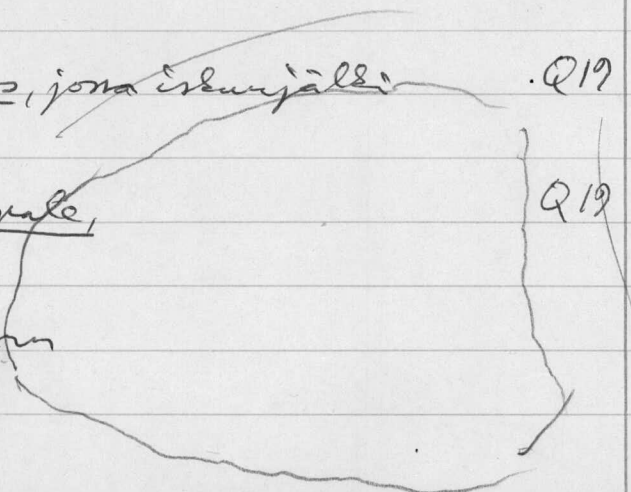 , jossa iskunjälki . Q19
pale, Q19